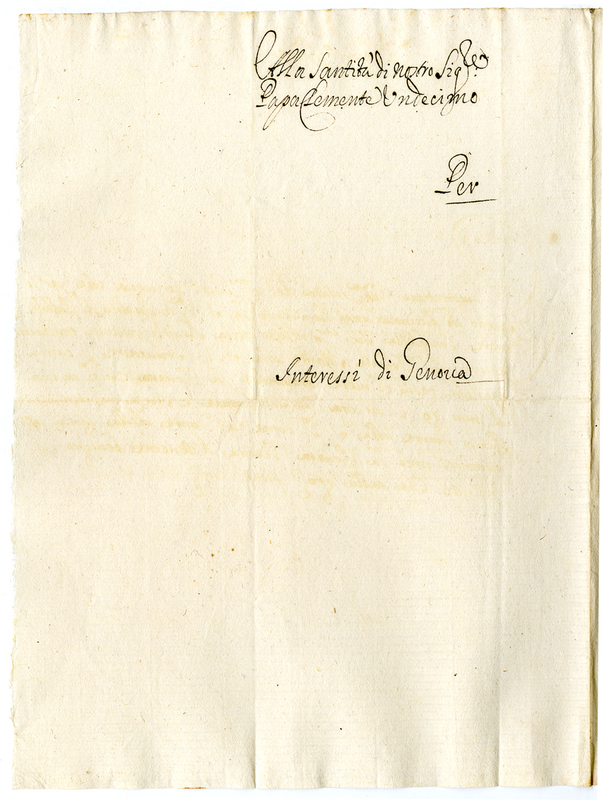 Alla Santità di nostro Sig.re
Papa Clemente Undecimo
Per
Interessi di Genova